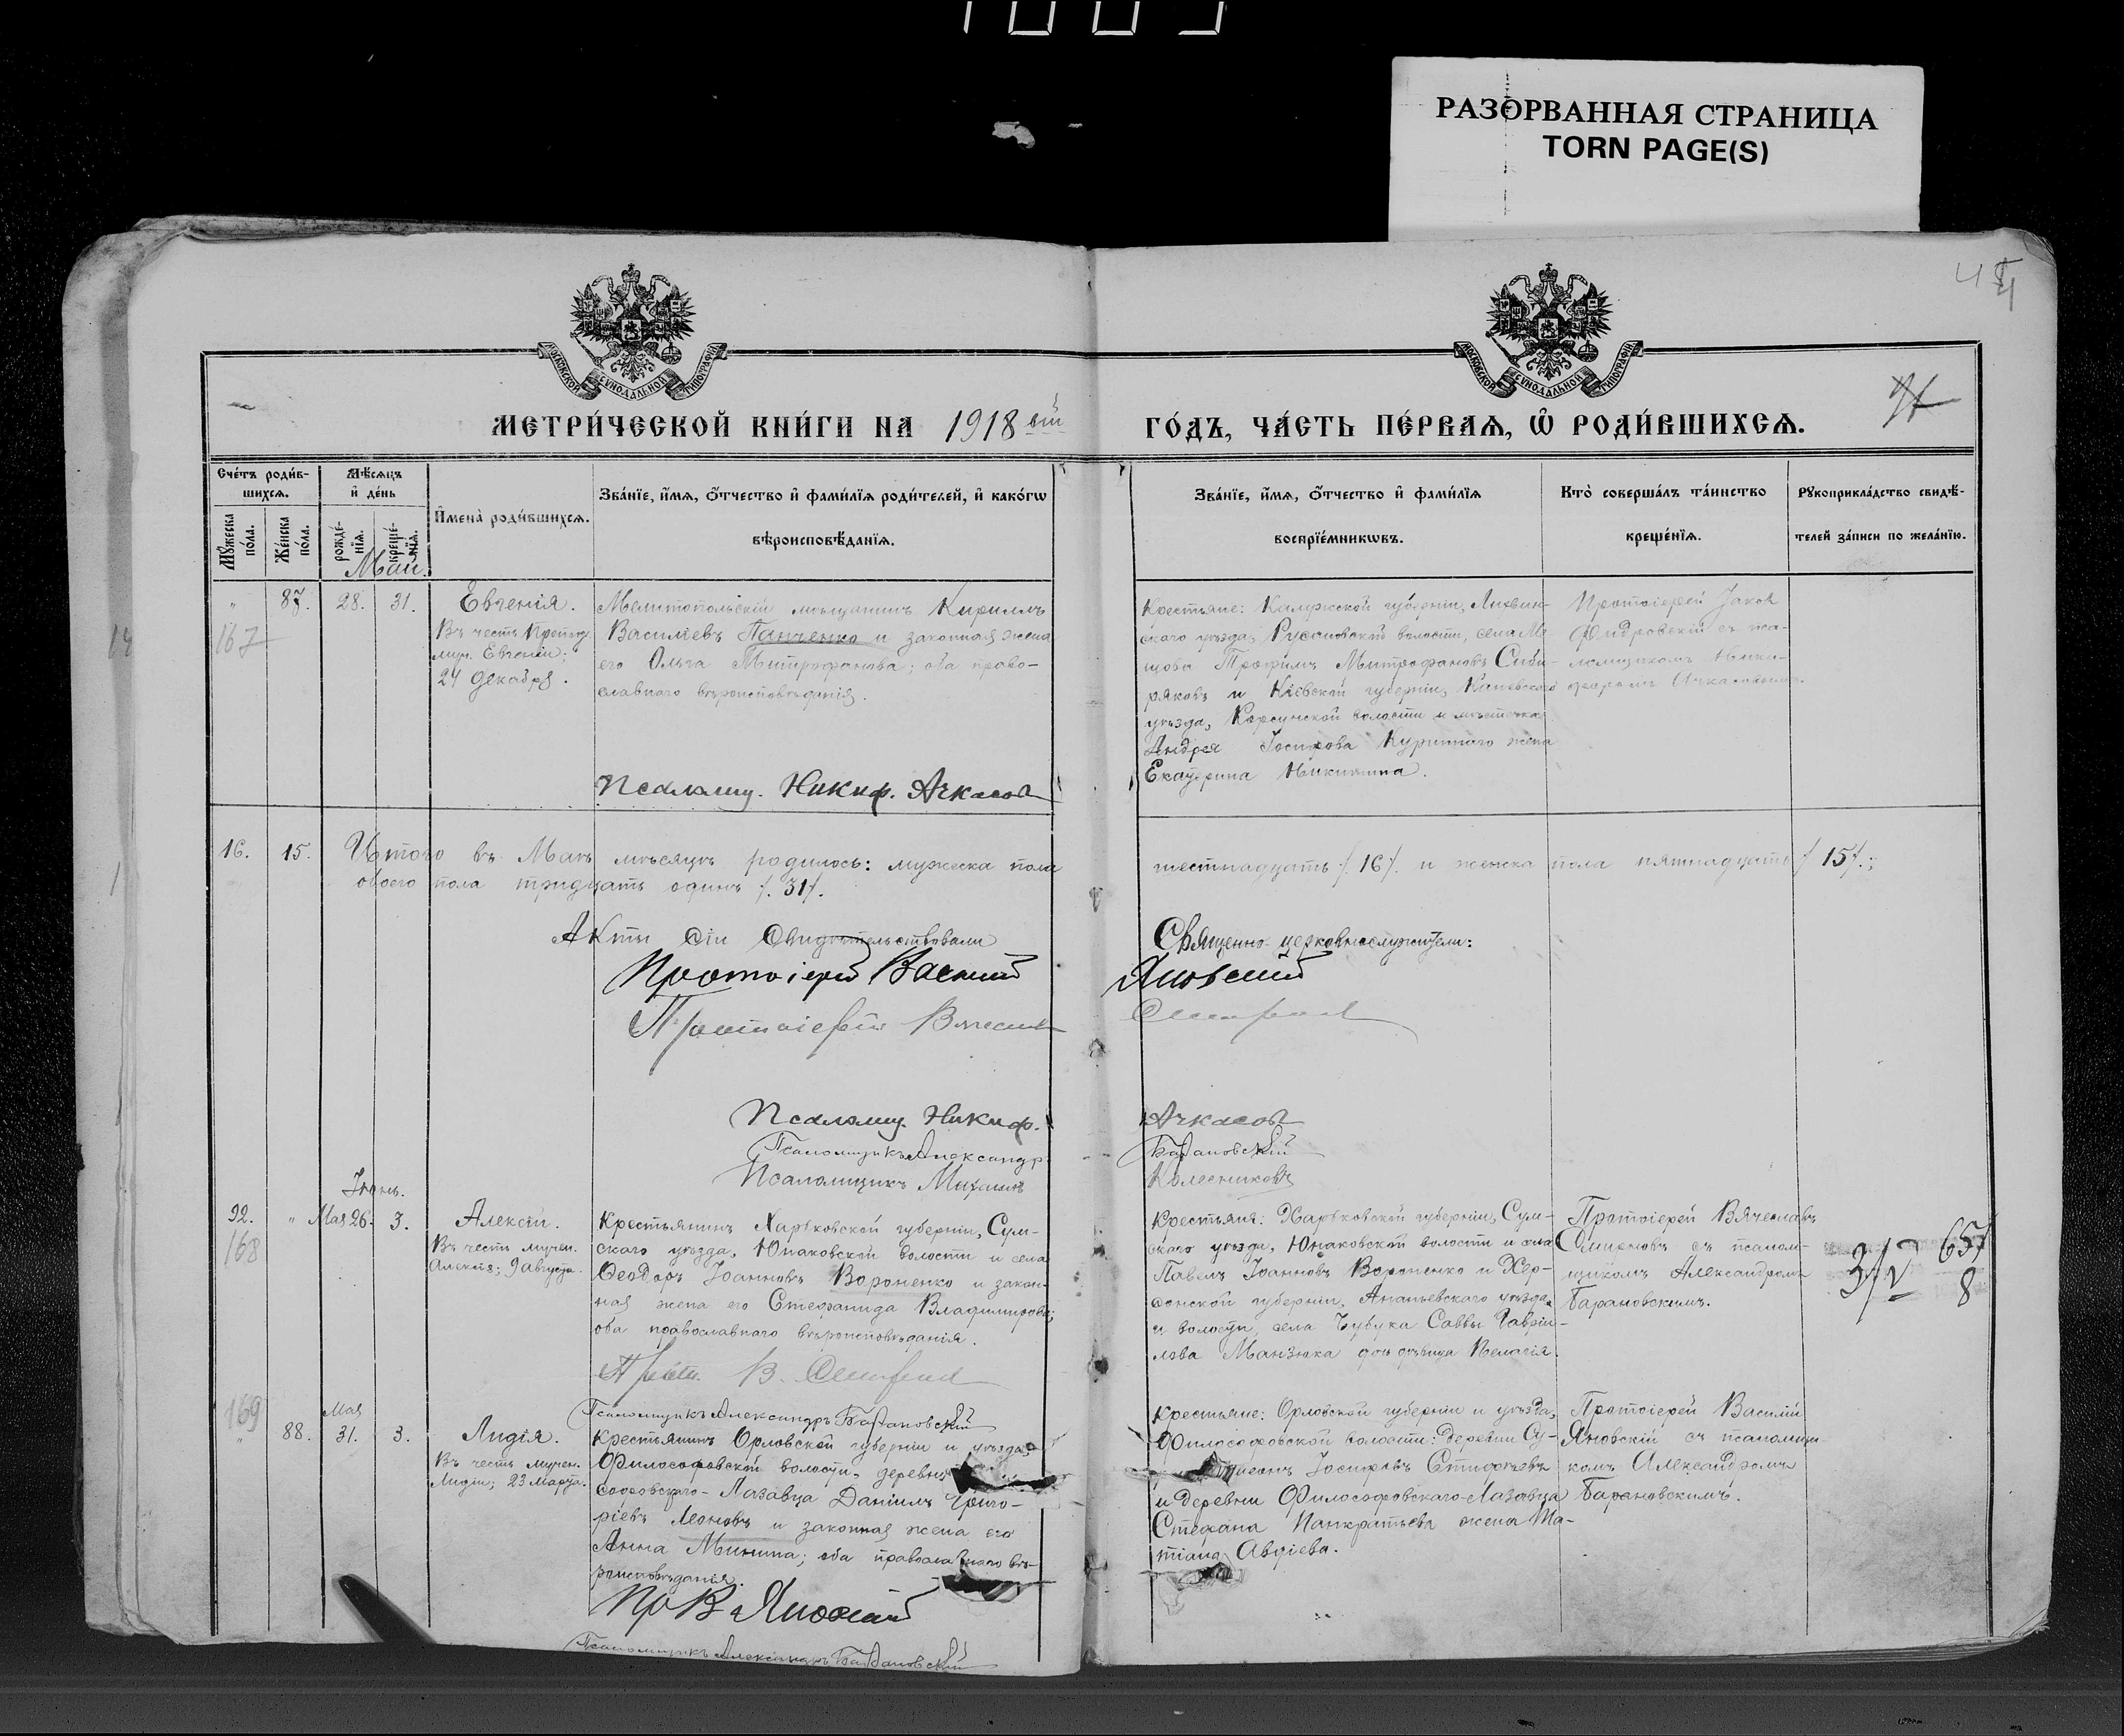 РАЗОРВАННАЯ СТРАНИЦА
TORN PAGE(S)
МОСКОВСКОЙ СѴНОДАЛЬНОЙ ТИПОГРАФІИ
МОСКОВСКОЙ СѴНОДАЛЬНОЙ ТИПОГРАФІИ
МЕТРИ́ЧЕСКОЙ КНИ́ГИ НА 1918 ый ГО́ДЪ, ЧА́СТЬ ПЕ́РВАЯ, Ѡ҆ РОДИ́ВШИХСЯ.
Сче́тъ роди́в-
шихся.
Мꙋ́жеска по́ла.
Же́нска по́ла.
Мѣ́сяцъ
и҆ де́нь
рожде́-нїя.
креще́-нїя.
И҆мена̀ роди́вшихся.
Зва́нїе, и҆́мя, ѻ҆́тчество и҆ фами́лїя роди́телей, и҆ како́гѡ
вѣроисповѣ́данїя.
Зва́нїе, и҆́мя, ѻ҆́тчество и҆ фами́лїя
воспрїе́мникѡвъ.
Кто̀ соверша́лъ та́инство
креще́нїя.
Рꙋкоприкла́дство свидѣ́-
телей за́писи по жела́нїю.
Май.
" 87. 28. 31.
167
Евгенія.
Въ честь Препод.
муч. Евгеніи;
24 декабря.
Мелитопольскій мѣщанинъ Кириллъ
Василіевъ Панченко и законная жена
его Ольга Митрофанова; оба право-
славнаго вѣроисповѣданія.
Псаломщ. Никиф. Ачкасов
Крестьяне: Калужской губерніи, Лихвин-
скаго уѣзда, волости, села Ме-
щова Трофимъ Митрофановъ Сиби-
ряковъ и Кіевской губерніи, Каневскаго
уѣзда, Корсунской волости и мѣстечка
Андрея Іосифова жена
Екатерина
Протоіерей Іаков
съ пса-
ломщикомъ Ники-
форомъ Ачкасовымъ.
16. 15. Итого въ Маѣ мѣсяцѣ родилось: мужеска пола шестнадцать /. 16/. и женска пола пятнадцать /. 15/.;
обоего пола тридцать одинъ /. 31/.
Акты сіи свидѣтельствовали Священно-церковнослужители:
Протоіерей Василий Яновский
Протоіерей Вячеслав
Псаломщ. Никиф. Ачкасов
Псаломщикъ Александръ Барановскій
Псаломщикъ Михаилъ Колесниковъ
Іюнь.
92. " Мая 26. 3.
168
Алексій.
Въ честь мучен.
Алексія; 9 августа.
Крестьянинъ Харьковской губерніи, Сум-
скаго уѣзда, Юнаковской волости и села
Ѳеодоръ Іоанновъ Вороненко и закон-
ная жена его Стефанида Владимирова;
оба православнаго вѣроисповѣданія.
Псаломщикъ Александръ Барановскій
Крестьяне: Харьковской губерніи, Сум-
скаго уѣзда, Юнаковской волости и села
Павелъ Іоанновъ Вороненко и Хер-
сонской губерніи, Ананьевскаго уѣзда
и волости, села Саввы Гаврии-
лова Манзюка дѣвица Пелагія.
Протоіерей Вячеславъ
съ псалом-
щикомъ Александромъ
Барановскимъ.
657
8
169
Мая
" 88. 31. 3.
Лидія.
Въ честь мучен.
Лидіи; 23 марта.
Крестьянинъ Орловской губерніи и уѣзда,
Философовской волости, деревни
софовскаго-Лазавца Даніилъ Григо-
ріевъ Леоновъ и законная жена его
Анна Минина; оба православнаго вѣ-
роисповѣданія.
Пр В Яновский
Псаломщикъ Александръ Барановскій
Крестьяне: Орловской губерніи и уѣзда,
Философовской волости: деревни Су-
Іосифовъ
и деревни Философовскаго-Лазавца
Стефана Панкратьева жена Та-
тіана Авдіева.
Протоіерей Василій
Яновскій съ псаломщи-
комъ Александромъ
Барановскимъ.